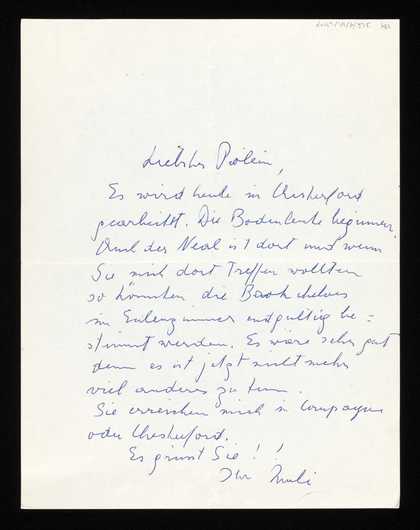 Liebster Piölein,
Es wird heute in Chesterford
gearbeitet. Die Bodenleute beginnen.
Und der Neal ist dort und wenn
Sie mich dort Treffen wollten
so könnten die Bookshelves
im Eulenzimmer endgültig be=
stimmt werden. Es wäre sehr gut
denn es ist jetzt nicht mehr
viel anderes zu tun.
Sie erreichen mich in
oder Chesterford.
Es grüsst Sie!!
Ihr